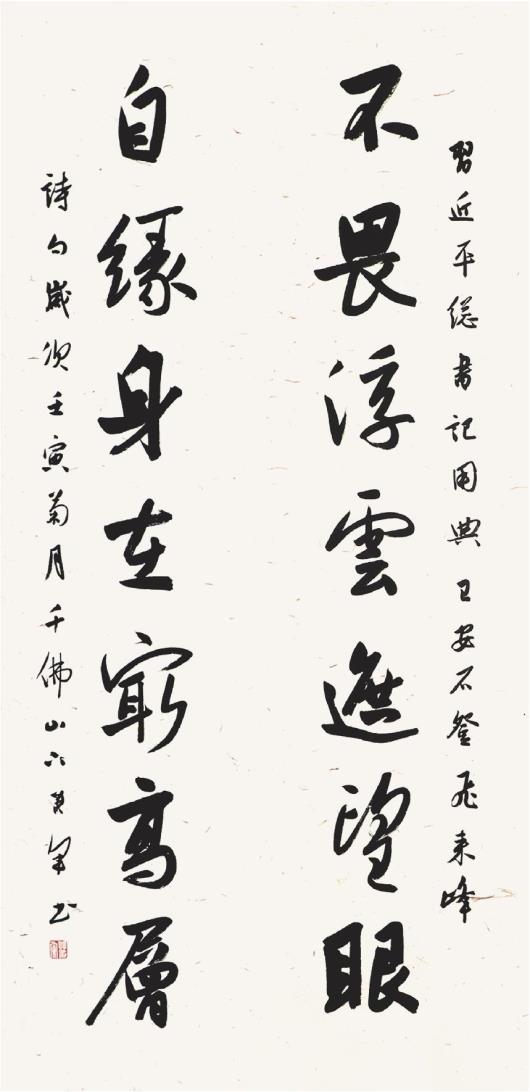 習近平總書記用典王安石登飛来峰
不畏浮雲遮望眼
自緣身在窮高層
詩句歲次壬寅菊月千佛山下其軍书